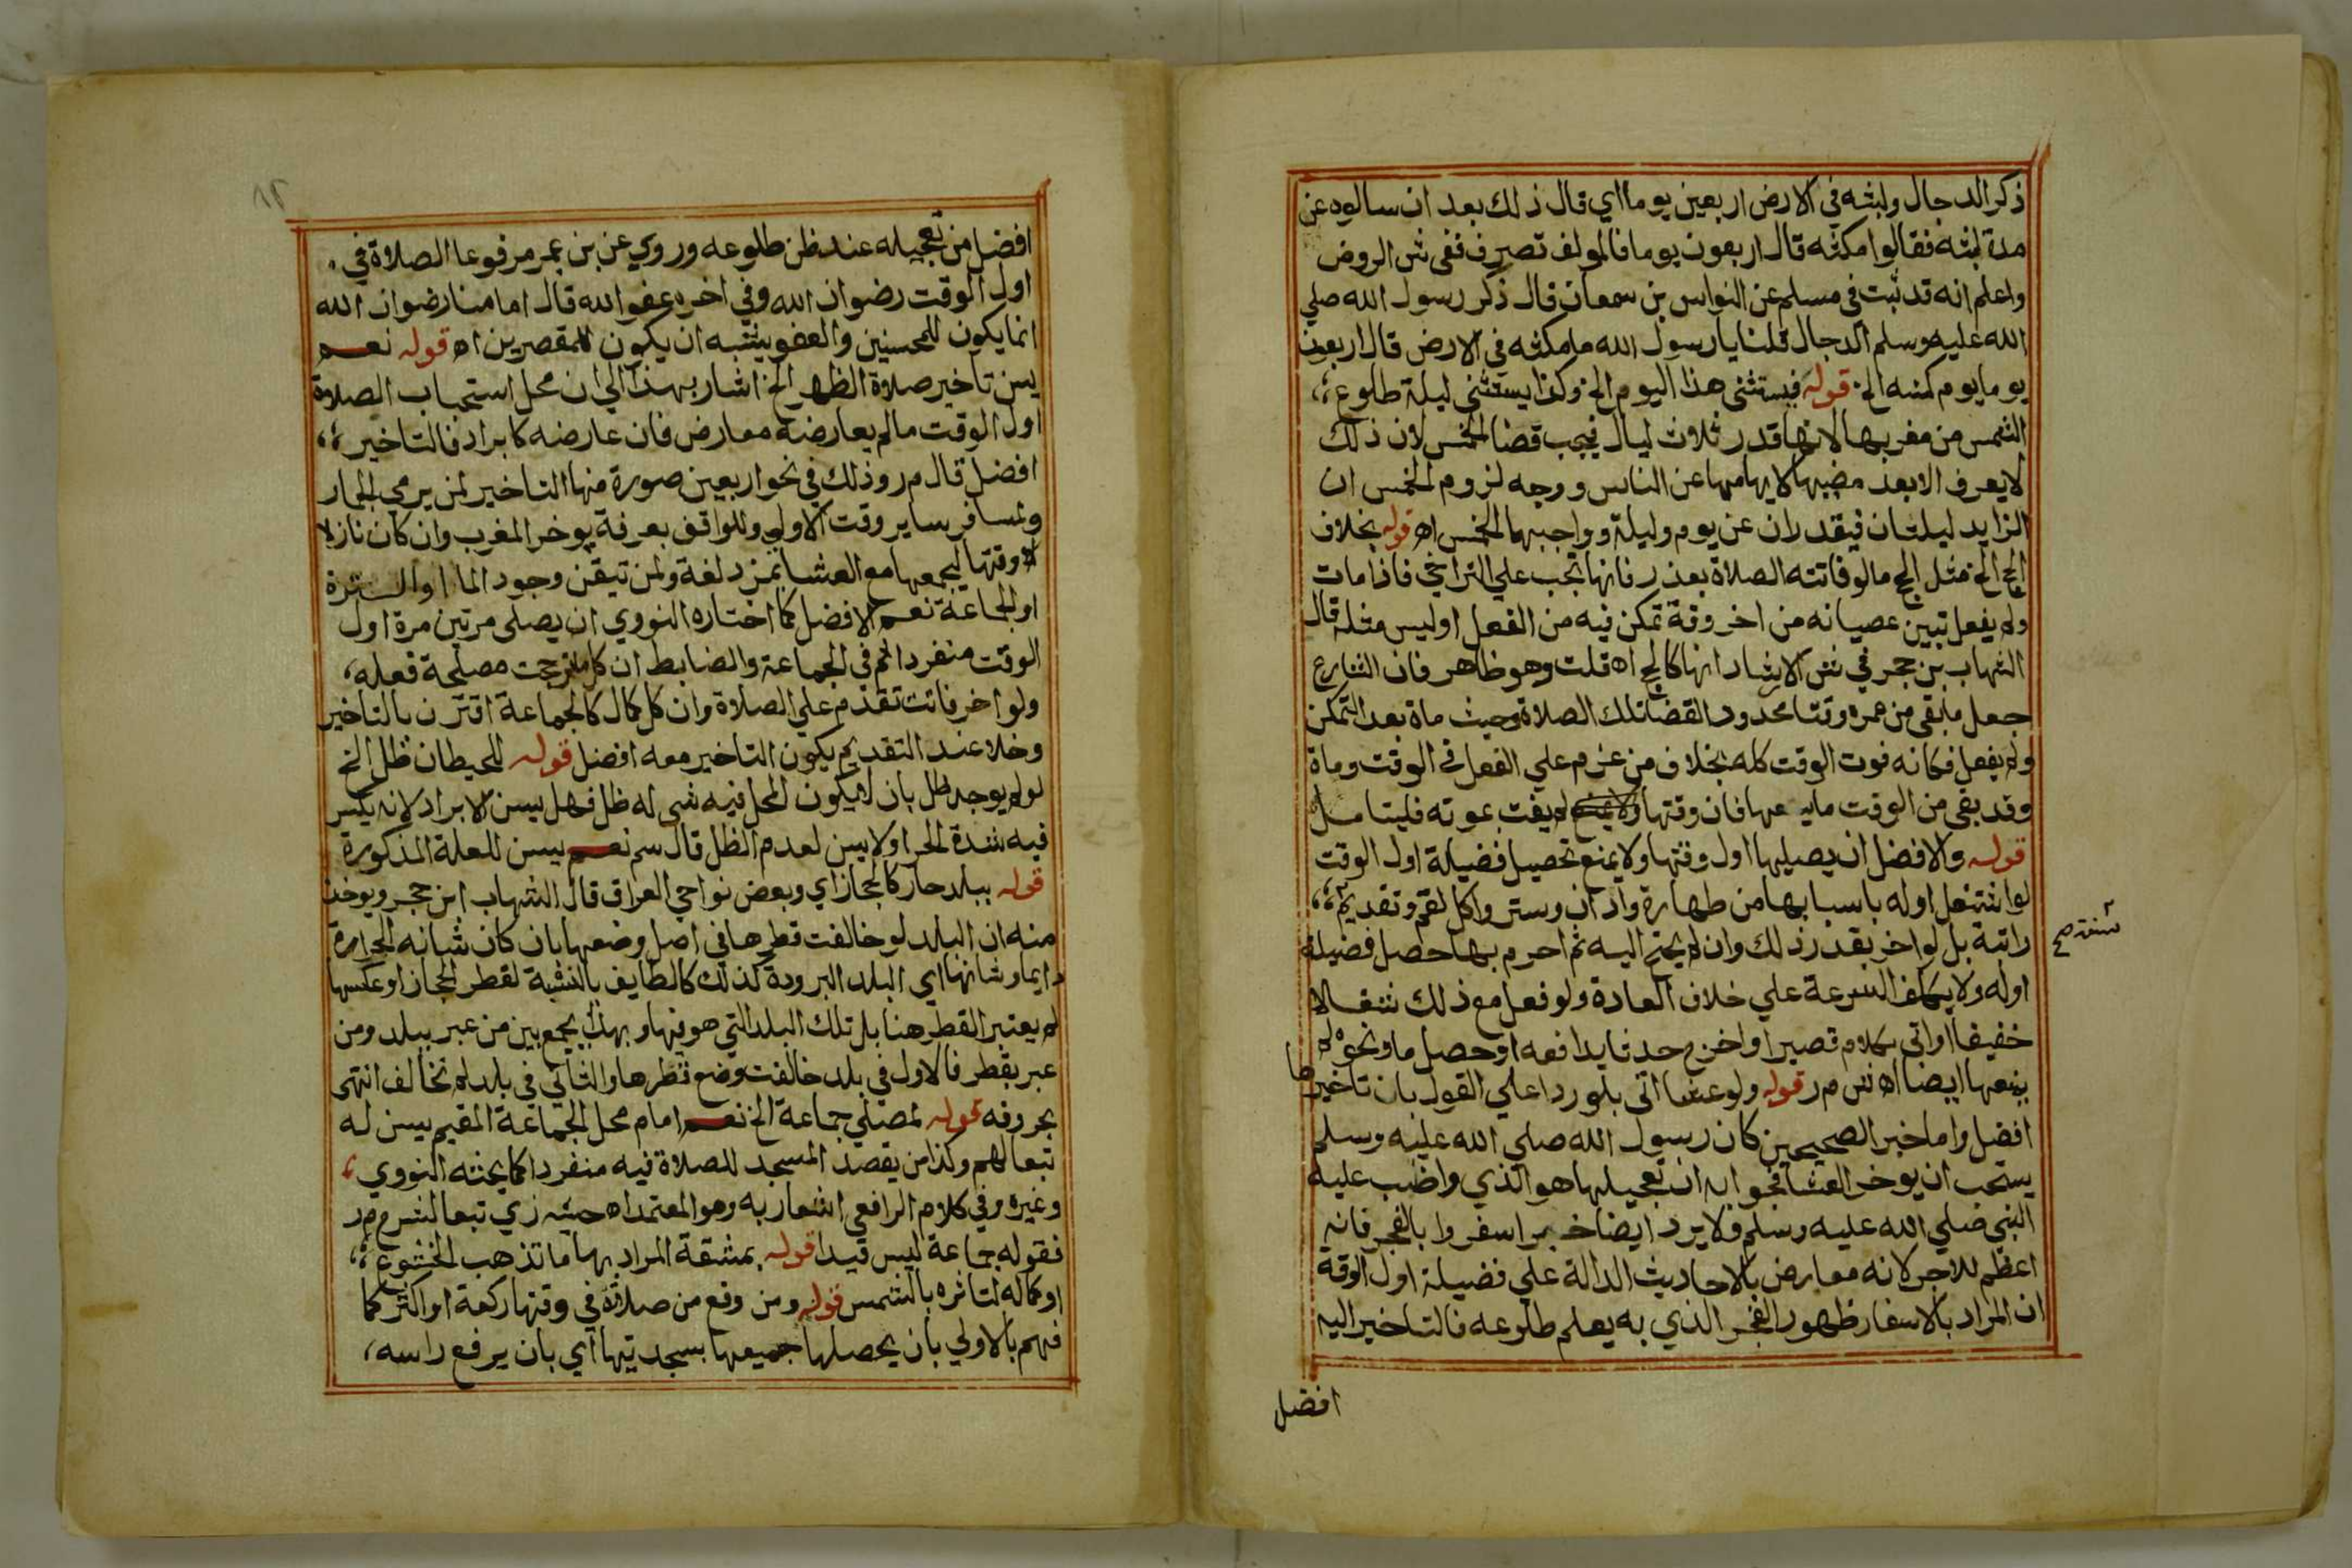 ذكر الدجال ولبثه في الارض اربعين يوما اي قال ذلك بعد ان سالوه عن
مدة لبثه فقالوا مكثه قال اربعون يوما فالمولف تصرف ففي ش الروض
واعلم انه قد ثبت في مسلم عن النواس بن سمعان قال ذكر رسول الله صلي
الله عليه وسلم الدجال قلنا يا رسول الله ما مكثه في الارض قال اربعون
يوما يوم كسنه الخ قوله فيستثني هذا اليوم الخ وكذا يستثني ليلة طلوع
الشمس من مغربها لانها قدر ثلاث ليال فيجب قضا الخمس لان ذلك
لا يعرف الا بعد مضيها لابهامها عن الناس ووجه لزوم الخمس ان
الزايد ليلتان فيقدران عن يوم وليلة وواجبهما الخمس اه قوله بخلاف
الحج الخ مثل الحج ما لو فاتته الصلاة بعذر فانها تجب علي التراخي فاذا مات
ولم يفعل تبين عصيانه من اخر وقة تمكن فيه من الفعل او ليس مثله قال
الشهاب بن حجر في ش الارشاد انها كالحج اه قلت وهو ظاهر فان الشارع
جعل ما بقي من عمره وقتا محدود القضا تلك الصلاة وحيث ماة بعد التمكن
ولم يفعل فكانه فوت الوقت كله بخلاف من عزم علي الفعل في الوقت وماة
وقد بقي من الوقت ما يسعها فان وقتها لم يفت بموته فليتامل
قوله والافضل ان يصليها اول وقتها ولا يمنع تحصيل فضيلة اول الوقت
لو اشتغل اوله باسبابها من طهارة واذان وستر واكل لقم وتقديم
سنة صح
راتبة بل لو اخر بقدر ذلك وان لم يحتج اليه ثم احرم بها حصل فضيلة
اوله ولا يكلف السرعة علي خلاف العادة ولو فعل مع ذلك شغلا
خفيفا او اتي بكلام قصير او اخرج حدثا يدافعه او حصل ما ونحوه لم
يمنعها ايضا اه ش م ر قوله ولو عشا اتي بلو ردا علي القول بان تاخيرها
افضل واما خبر الصحيحين كان رسول الله صلي الله عليه وسلم
يستحب ان يوخر العشا فجوابه ان تعجيلها هو الذي واظب عليه
النبي صلي الله عليه وسلم ولا يرد ايضا خبر اسفروا بالفجر فانه
اعظم للاجر لانه معارض بالاحاديث الدالة علي فضيلة اول الوقة
ان المراد بالاسفار ظهور الفجر الذي به يعلم طلوعه فالتاخير اليه
افضل
افضل من تعجيله عند ظن طلوعه وروي عن بن عمر مرفوعا الصلاة في
اول الوقت رضوان الله وفي اخره عفو الله قال امامنا رضوان الله
انما يكون للمحسنين والعفو يشبه ان يكون للمقصرين اه قوله نعم
يسن تاخير صلاة الظهر الخ اشار بهذا الي ان محل استحباب الصلاة
اول الوقت ما لم يعارضه معارض فان عارضه كابراد فالتاخير
افضل قال م ر وذلك في نحو اربعين صورة منها التاخير لمن يرمي الجمار
ولمسافر ساير وقت الاولي وللواقف بعرفة يوخر المغرب وان كان نازلا
وقتها ليجمعها مع العشا بمزدلفة ولمن تيقن وجود الما او السترة
او الجماعة نعم الافضل كما اختاره النووي ان يصلي مرتين مرة اول
الوقت منفردا ثم في الجماعة والضابط ان كل ما ترجحت مصلحة فعله
ولو اخر فاتت تقدم علي الصلاة وان كل كمال كالجماعة اقترن بالتاخير
وخلا عند التقديم يكون التاخير معه افضل قوله للحيطان ظل الخ
لو لم يوجد ظل بان لم يكون المحل فيه شي له ظل فهل يسن الابراد لانه يكسر
فيه شدة الحر او لا يسن لعدم الظل قال سم نعم يسن للعلة المذكورة
قوله ببلد حار كالحجاز اي وبعض نواحي العراق قال الشهاب ابن حجر ويوخذ
منه ان البلد لو خالفت قطرها في اصل وضعها بان كان شانه الحرارة
دايما وشانها اي البلد البرودة كذلك كالطايف بالنسبة لقطر الحجاز او عكسها
لم يعتبر القطر هنا بل تلك البلد التي هو فيها وبهذا يجمع بين من عبر ببلد ومن
عبر بقطر فالاول في بلد خالفت وضع قطرها والثاني في بلد لم تخالف انتهي
بحروفه قوله لمصلي جماعة الخ نعم امام محل الجماعة المقيم يسن له
تبعا لهم وكذا من يقصد المسجد للصلاة فيه منفردا كما بحثه النووي
وغيره وفي كلام الرافعي اشعار به وهو المعتمد اه حيثه زي تبعا لشرح م ر
فقوله جماعة ليس قيدا قوله بمشقة المراد بها ما تذهب الخشوع
او كماله لتاثره بالشمس قوله ومن وقع من صلاته في وقتها ركعة او اكثر كما
فهم بالاولي بان يحصلها جميعها بسجدتيها اي بان يرفع راسه